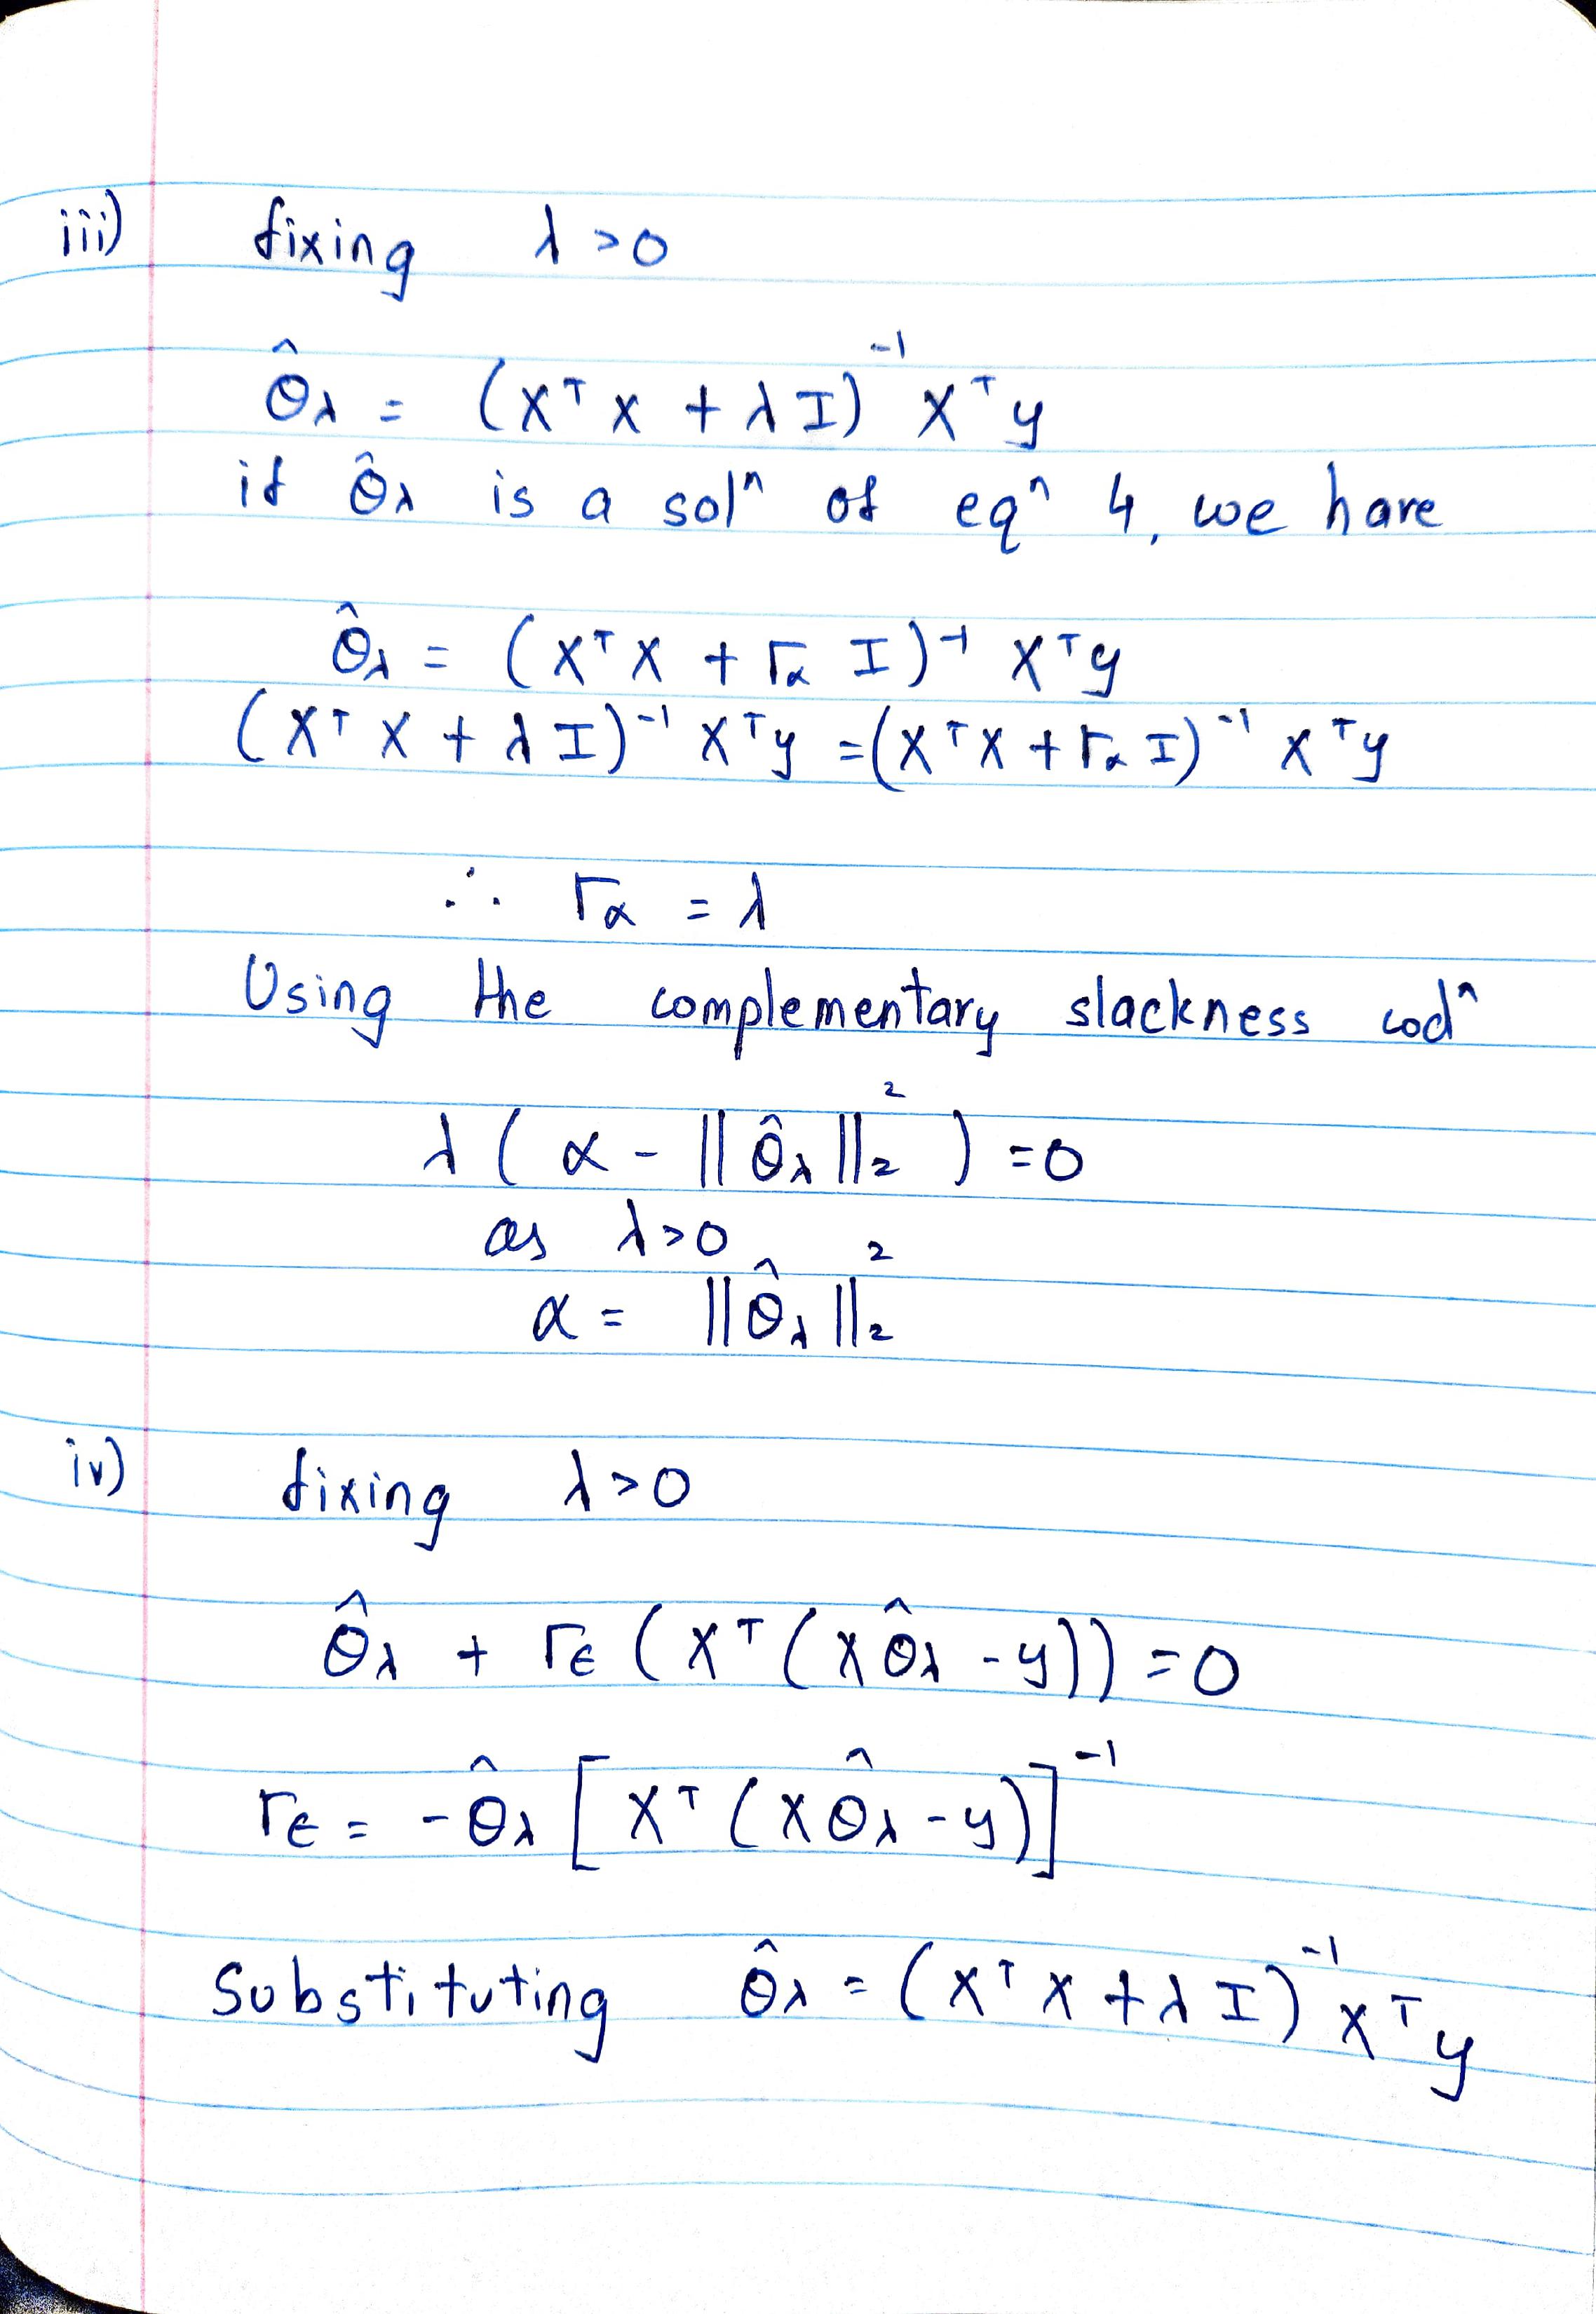 iii) fixing λ >0
θ̂λ = (Xᵀ X + λ I)⁻¹ Xᵀ y
if θ̂λ is a solⁿ of eqⁿ 4, we have
θ̂λ = (Xᵀ X + rα I)⁻¹ Xᵀ y
(Xᵀ X + λ I)⁻¹ Xᵀ y = (Xᵀ X + rα I)⁻¹ Xᵀ y
∴ rα = λ
Using the complementary slackness codⁿ
λ ( α - || θ̂λ ||₂² ) = 0
as λ>0
α = || θ̂λ ||₂²
iv) fixing λ>0
θ̂λ + rϵ ( Xᵀ ( X θ̂λ - y)) = 0
rϵ = - θ̂λ [ Xᵀ ( X θ̂λ - y)]⁻¹
Substituting θ̂λ = (Xᵀ X + λ I)⁻¹ Xᵀ y